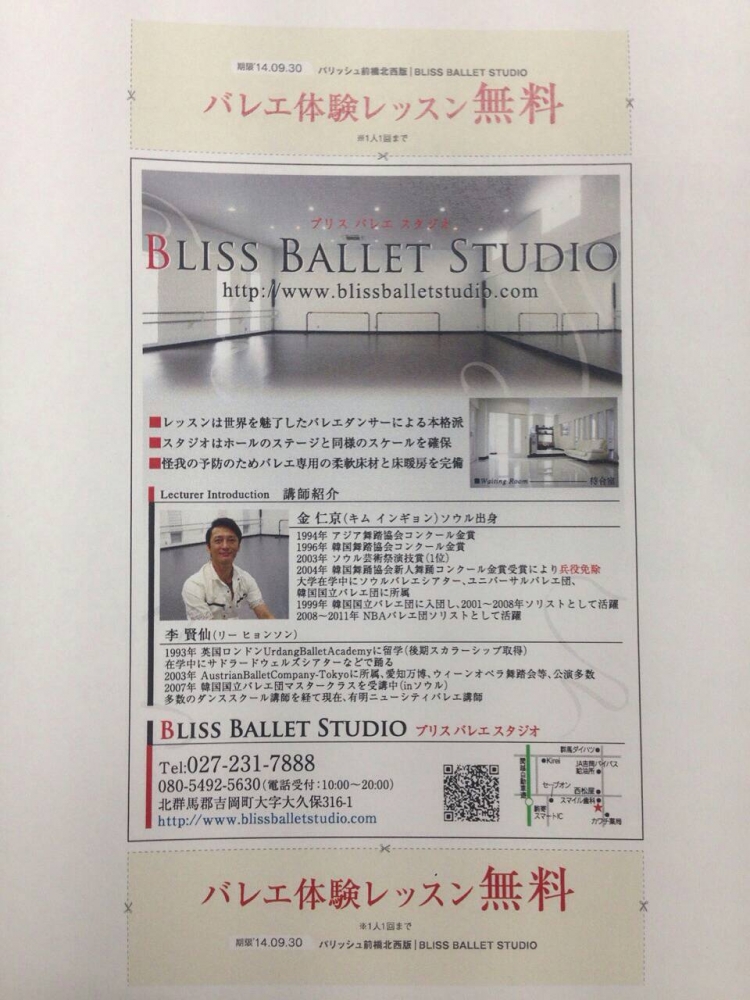 期限'14.09.30 パリッシュ前橋北西版|BLISS BALLET STUDIO
バレエ体験レッスン無料
※1人1回まで
ブリス バレエ スタジオ
BLISS BALLET STUDIO
http://www.blissballetstudio.com
■レッスンは世界を魅了したバレエダンサーによる本格派
■スタジオはホールのステージと同様のスケールを確保
■怪我の予防のためバレエ専用の柔軟床材と床暖房を完備
■Waiting Room 待合室
Lecturer Introduction 講師紹介
金 仁京(キム インギョン)ソウル出身
1994年 アジア舞踏協会コンクール金賞
1996年 韓国舞踏協会コンクール金賞
2003年 ソウル芸術祭演技賞(1位)
2004年 韓国舞踊協会新人舞踊コンクール金賞受賞により兵役免除
大学在学中にソウルバレエシアター、ユニバーサルバレエ団、
韓国国立バレエ団に所属
1999年 韓国国立バレエ団に入団し、2001~2008年ソリストとして活躍
2008~2011年 NBAバレエ団ソリストとして活躍
李 賢仙(リー ヒョンソン)
1993年 英国ロンドンUrdangBalletAcademyに留学(後期スカラーシップ取得)
在学中にサドラードウェルズシアターなどで踊る
2003年 AustrianBalletCompany-Tokyoに所属、愛知万博、ウィーンオペラ舞踏会等、公演多数
2007年 韓国国立バレエ団マスタークラスを受講中(inソウル)
多数のダンススクール講師を経て現在、有明ニューシティバレエ講師
BLISS BALLET STUDIO ブリス バレエ スタジオ
Tel:027-231-7888
080-5492-5630(電話受付:10:00~20:00)
北群馬郡吉岡町大字大久保316-1
http://www.blissballetstudio.com
群馬ダイハツ
Kirei
JA吉岡バイパス
給油所
関越自動車道
セーブオン
西松屋
スマイル歯科
駒寄
スマートIC
カワチ薬局
バレエ体験レッスン無料
※1人1回まで
期限'14.09.30 パリッシュ前橋北西版|BLISS BALLET STUDIO